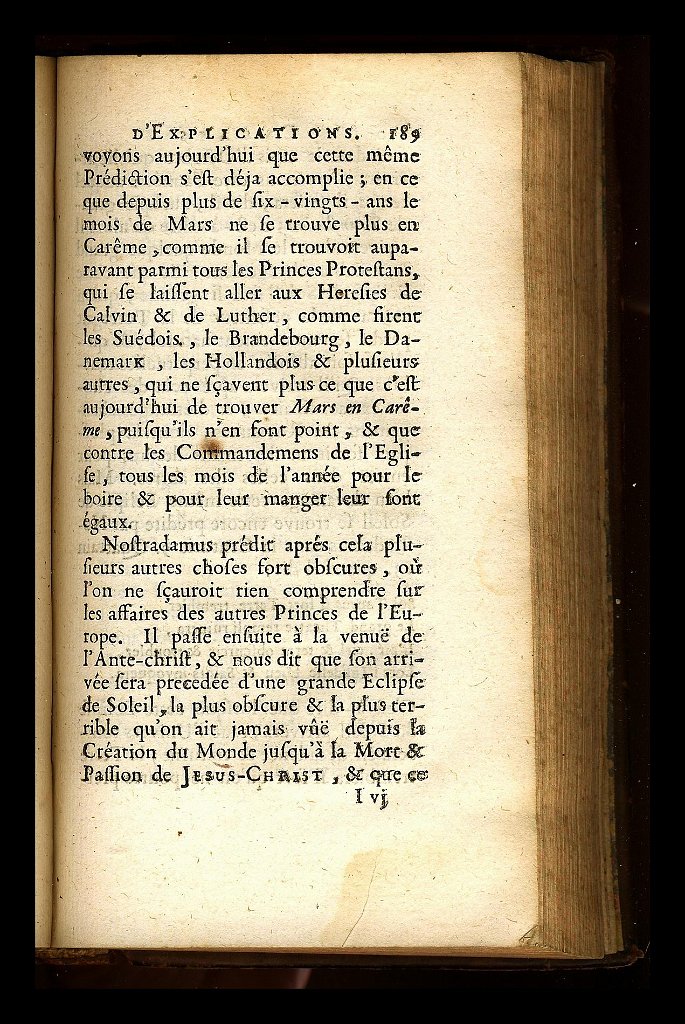 D'EXPLICATIONS. 189
voyons aujourd'hui que cette même
Prédiction s'eſt déja accomplie ; en ce
que depuis plus de ſix - vingts - ans le
mois de Mars ne ſe trouve plus en
Carême , comme il ſe trouvoit aupa-
ravant parmi tous les Princes Proteſtans,
qui ſe laiſſent aller aux Hereſies de
Calvin & de Luther , comme firent
les Suédois , le Brandebourg , le Da-
nemarK , les Hollandois & pluſieurs
autres , qui ne ſçavent plus ce que c'eſt
aujourd'hui de trouver Mars en Carê-
me , puiſqu'ils n'en font point , & que
contre les Commandemens de l'Egli-
ſe , tous les mois de l'année pour le
boire & pour leur manger leur ſont
égaux.
Noſtradamus prédit aprés cela plu-
ſieurs autres choſes fort obſcures , où
l'on ne ſçauroit rien comprendre ſur
les affaires des autres Princes de l'Eu-
rope. Il paſſe enſuite à la venuë de
l'Ante-chriſt , & nous dit que ſon arri-
vée ſera precedée d'une grande Eclipſe
de Soleil , la plus obſcure & la plus ter-
rible qu'on ait jamais vûë depuis la
Création du Monde juſqu'à la Mort &
Paſſion de JESUS-CHRIST , & que ce
I vj